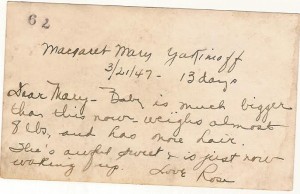 62
Margaret Mary Yakimoff
3/21/47 - 13 days
Dear Mary - Baby is much bigger
than this now - weighs almost
8 lbs, and has more hair.
She's awful sweet & is just now
waking up. Love Rose